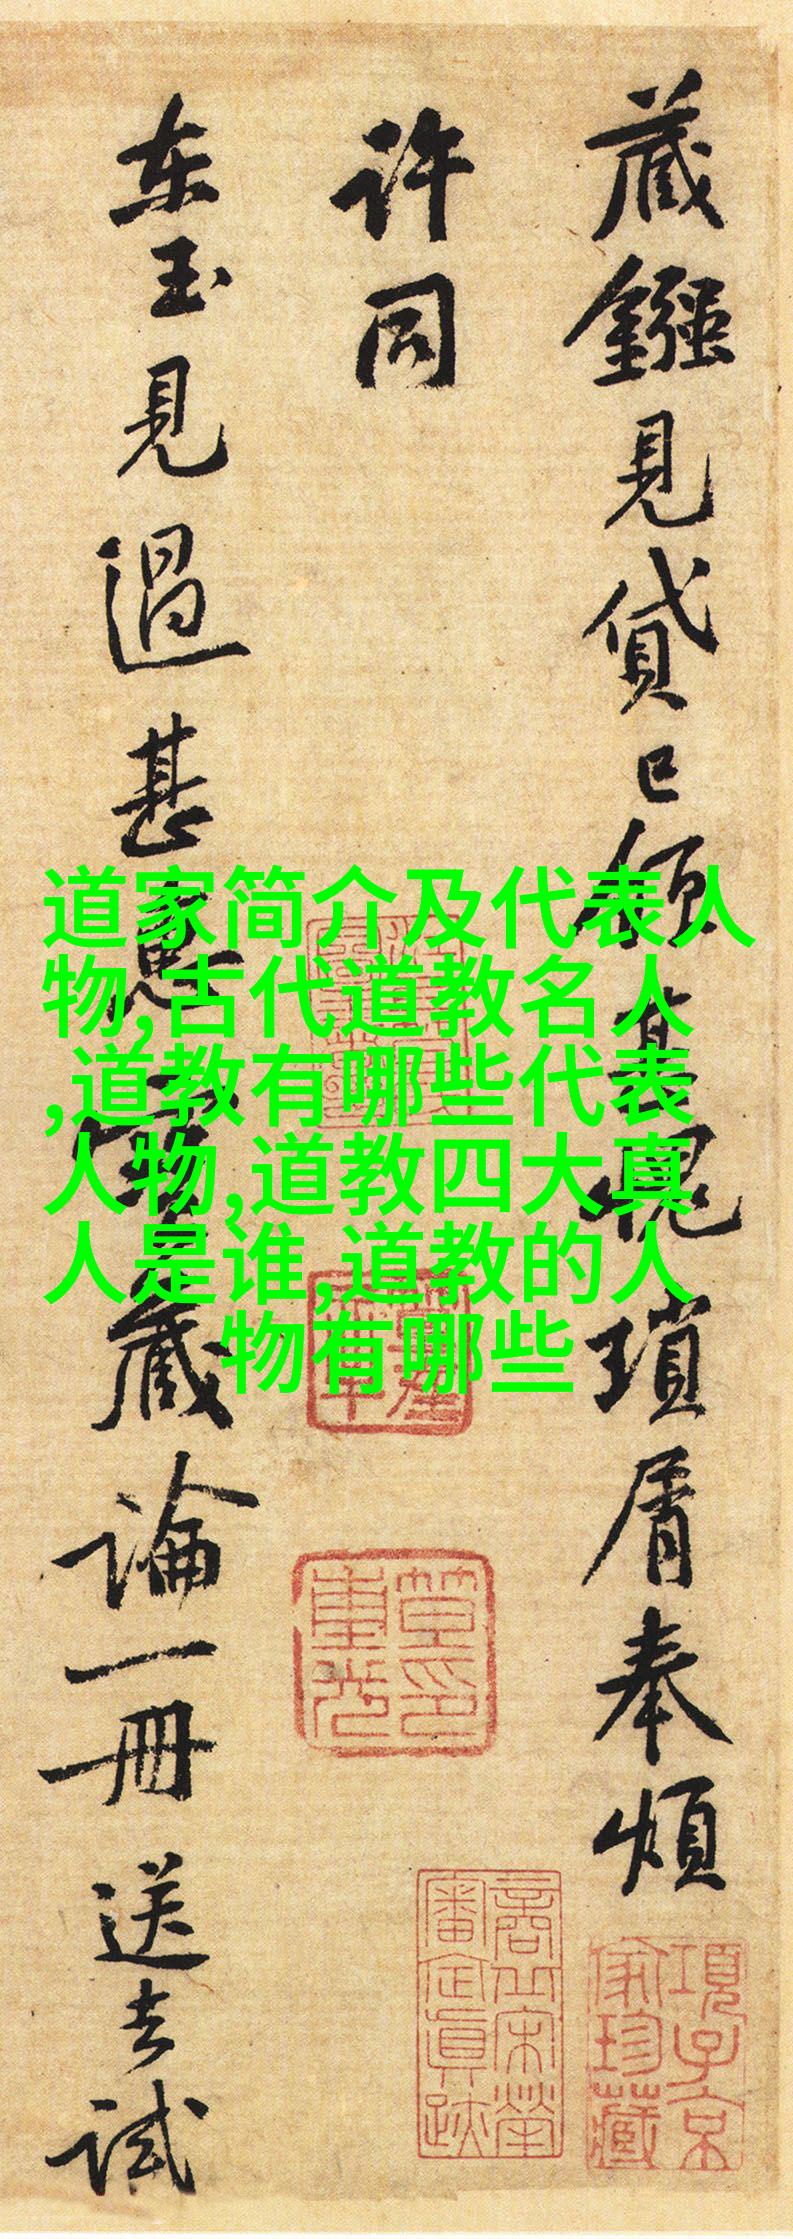 藏鏹見貸已領甚愧瑣屑奉煩
许同
东玉見過甚惠
藏論一冊送去試
道家简介及代表人
物,古代道教名人
,道教有哪些代表
人物,道教四大真
人是谁,道教的人
物有哪些
項子京
家珍藏